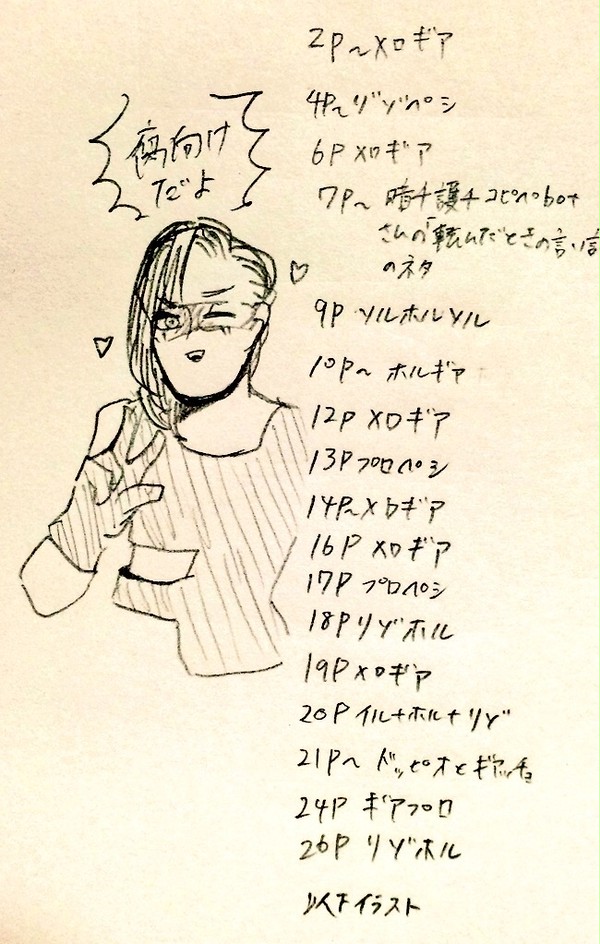 腐向け
だよ
2P~メロギア
4P~リゾペシ
6P メロギア
7P~ 暗チ護チコピペbot
さんの「転んだときの言い
のネタ
9P ソルホルソル
10P~ ホルギア
12P メロギア
13P プロペシ
14P~メロギア
16P メロギア
17P プロペシ
18P リゾホル
19P メロギア
20P イル+ホル+リゾ
21P~ ドッピオとギアッチョ
24P ギアプロ
26P リゾホル
以下イラスト